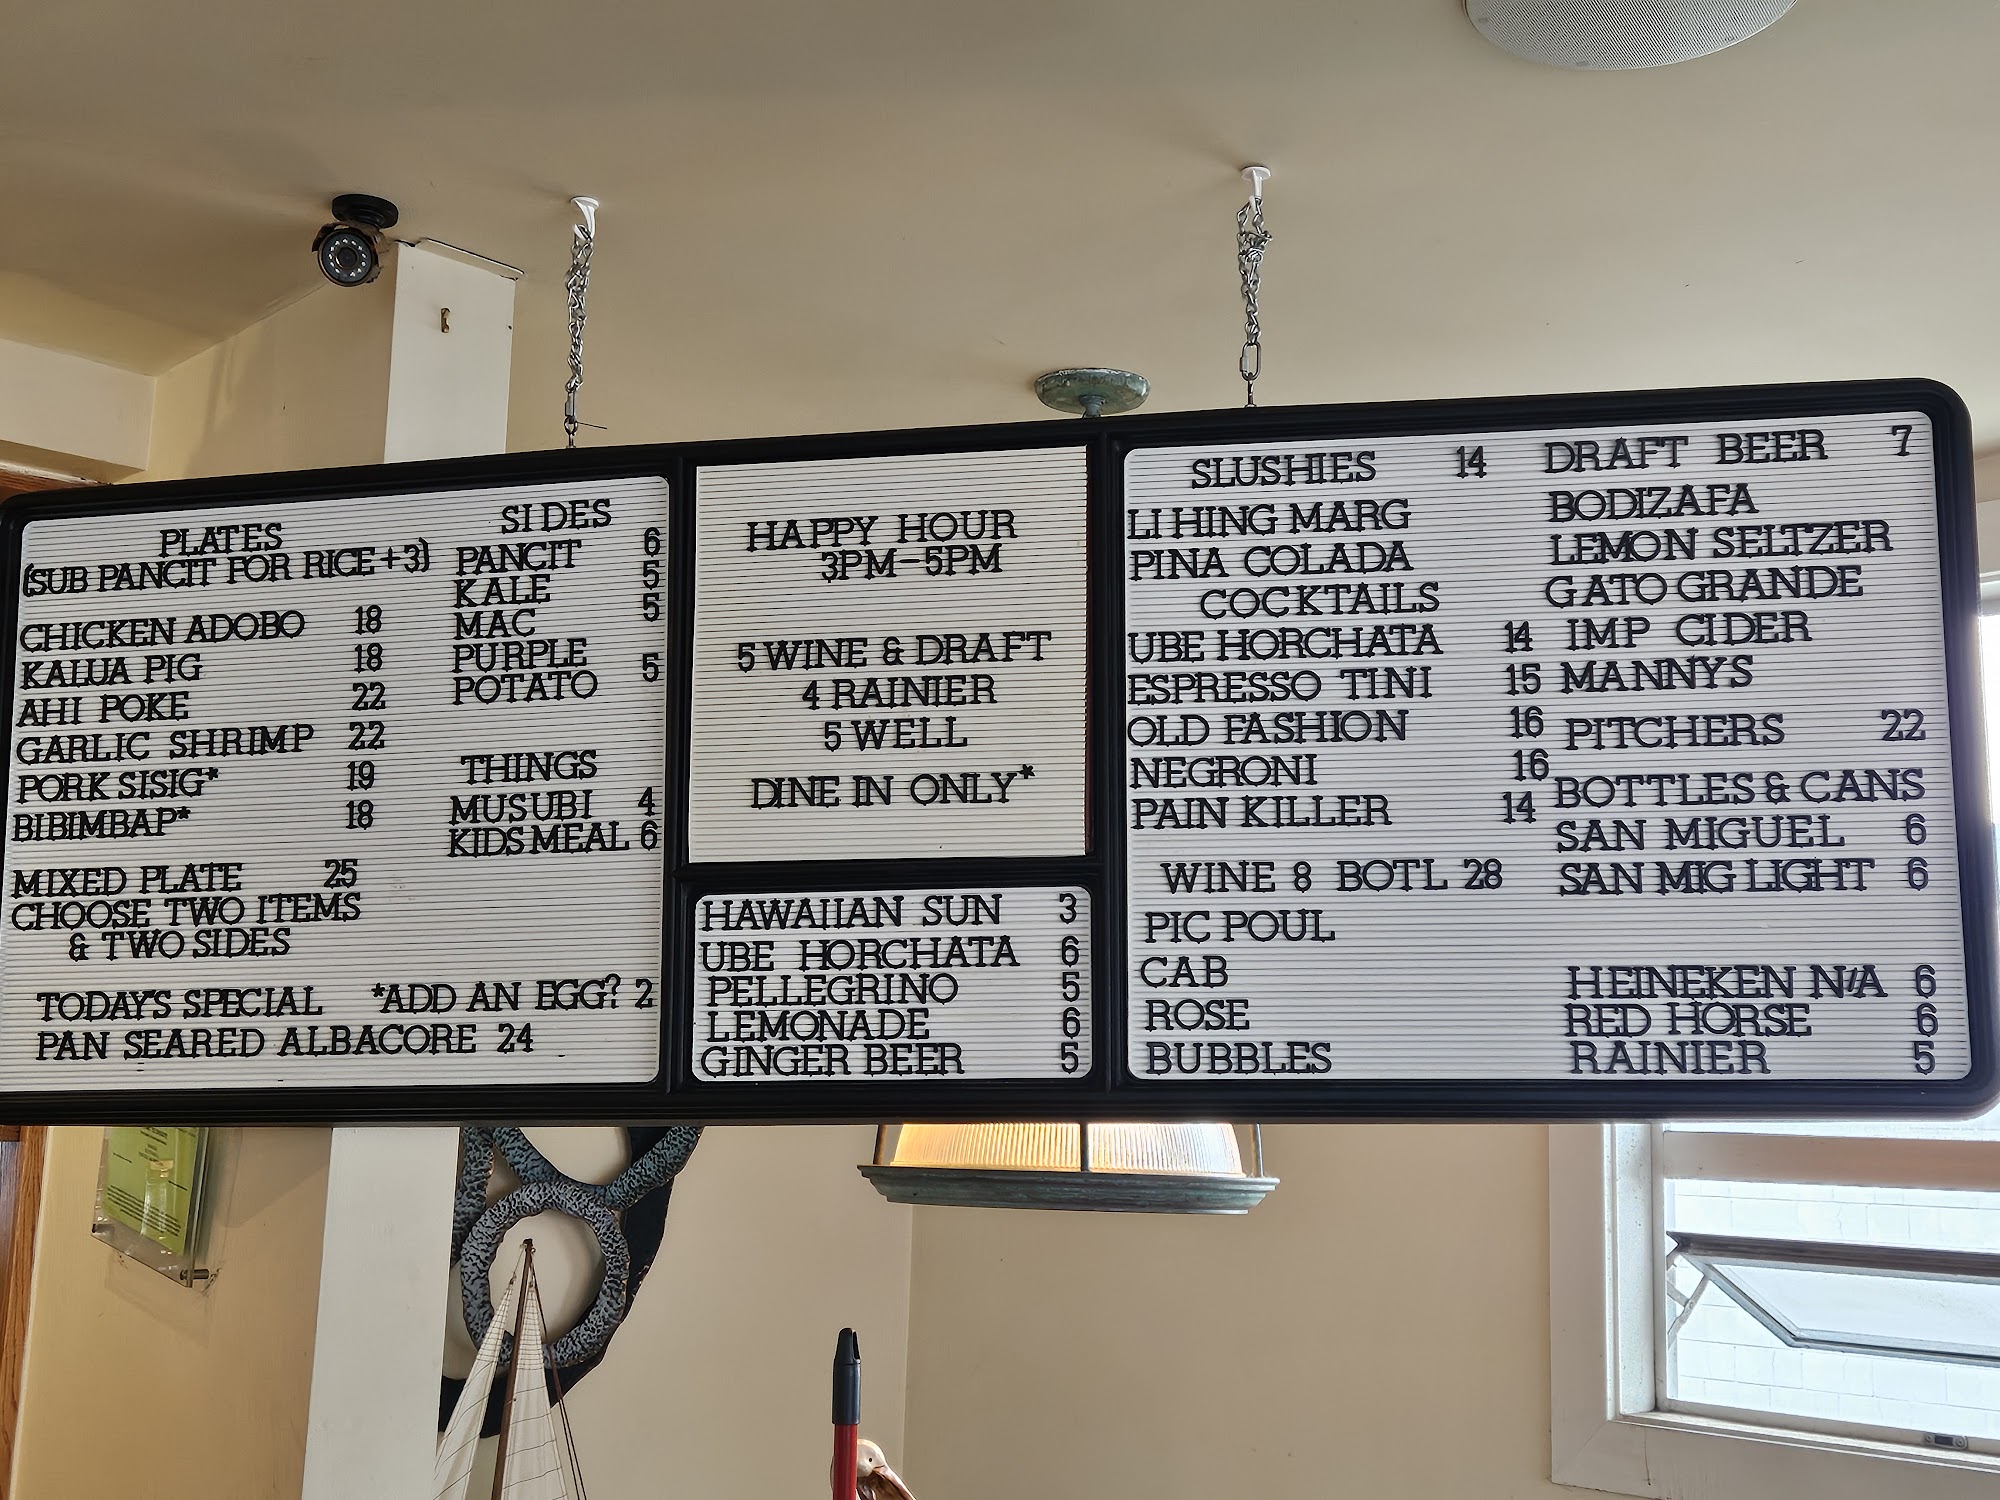 PLATES
(SUB PANCIT FOR RICE +3)
CHICKEN ADOBO 18
KALUA PIG 18
AHI POKE 22
GARLIC SHRIMP 22
PORK SISIG* 19
BIBIMBAP* 18
MIXED PLATE 25
CHOOSE TWO ITEMS
& TWO SIDES
SIDES
PANCIT 6
KALE 5
MAC 5
PURPLE
POTATO 5
THINGS
MUSUBI 4
KIDS MEAL 6
TODAY'S SPECIAL *ADD AN EGG? 2
PAN SEARED ALBACORE 24
HAPPY HOUR
3PM-5PM
5 WINE & DRAFT
4 RAINIER
5 WELL
DINE IN ONLY*
HAWAIIAN SUN 3
UBE HORCHATA 6
PELLEGRINO 5
LEMONADE 6
GINGER BEER 5
SLUSHIES 14
LI HING MARG
PINA COLADA
COCKTAILS
UBE HORCHATA 14
ESPRESSO TINI 15
OLD FASHION 16
NEGRONI 16
PAIN KILLER 14
WINE 8 BOTL 28
PIC POUL
CAB
ROSE
BUBBLES
DRAFT BEER 7
BODIZAFA
LEMON SELTZER
GATO GRANDE
IMP CIDER
MANNYS
PITCHERS 22
BOTTLES & CANS
SAN MIGUEL 6
SAN MIG LIGHT 6
HEINEKEN N/A 6
RED HORSE 6
RAINIER 5